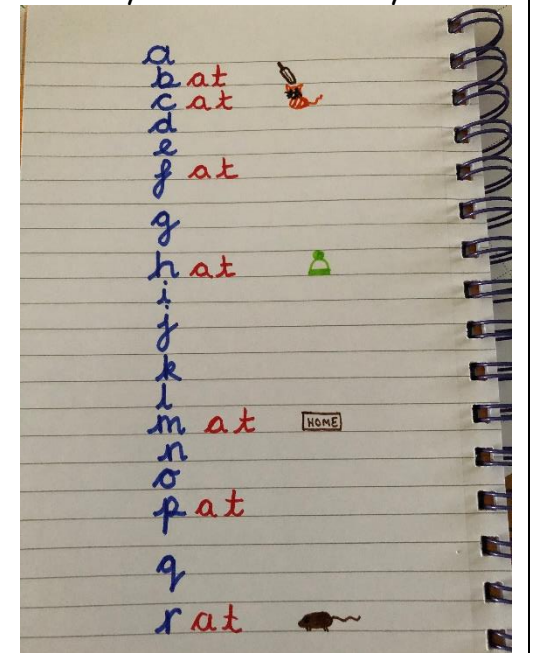 a
b at
c at
d
e
f at
g
h at
i
j
k
l
m at HOME
n
o
p at
q
r at